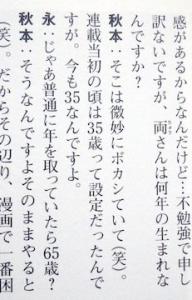 感があるからなんだけど。不勉強で申し
訳ないですが、両さんは何年の生まれな
んですか?
秋本：そこは微妙にボカシていて(笑)。
連載当初の頃は35歳って設定だったんで
すが。今も35なんですよ。
永：じゃあ普通に年を取っていたら65歳?
秋本：そうなんですよそのままやると
(笑)。だからその辺り、漫画で一番困